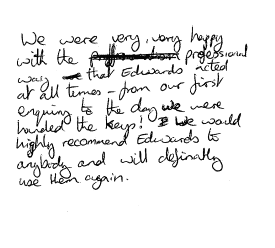 We were very, very happy
with the professional
way that Edwards acted
at all times - from our first
enquiry to the day we were
handed the keys! We would
highly recommend Edwards to
anybody and will definatly
use them again.